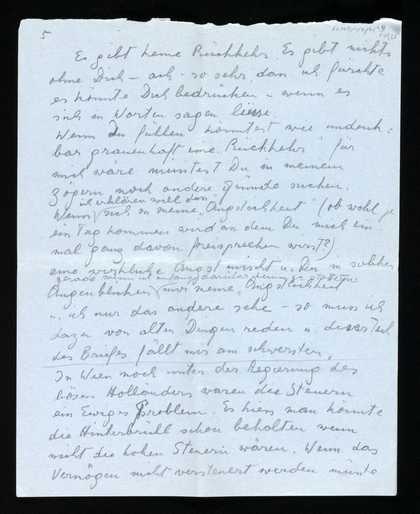 5
Es gibt keine Rückkehr. Es gibt nichts
ohne Dich – ach – so sehr dass ich fürchte
es könnte Dich bedrücken – wenn es
sich in Worten sagen liesse.
Wenn Du fühlen könntest wie undenk-
bar grauenhaft eine Rückkehr für
mich wäre müsstest Du in meinem
Zögern noch andere Gründe suchen.
ich erklären will dass
Wenn sich in meine Ängstlichkeit (ob wohl je
ein Tag kommen wird an dem Du mich ein-
mal ganz davon freisprechen wirst?)
eine wirkliche Angst mischt u. Du in solchen
Augenblicken nur meine Ängstlichkeit
u. ich nur das andere sehe – so muss ich
dazu von alten Dingen reden u. dieser Teil
des Briefes fällt mir am schwersten.
In Wien noch unter der Regierung des
bösen Holländers waren die Steuern
ein Ewiges Problem. Es hiess man könnte
die Hinterbrühl schon behalten wenn
nicht die hohen Steuern wären. Wenn das
Vermögen nicht versteuert werden müsste